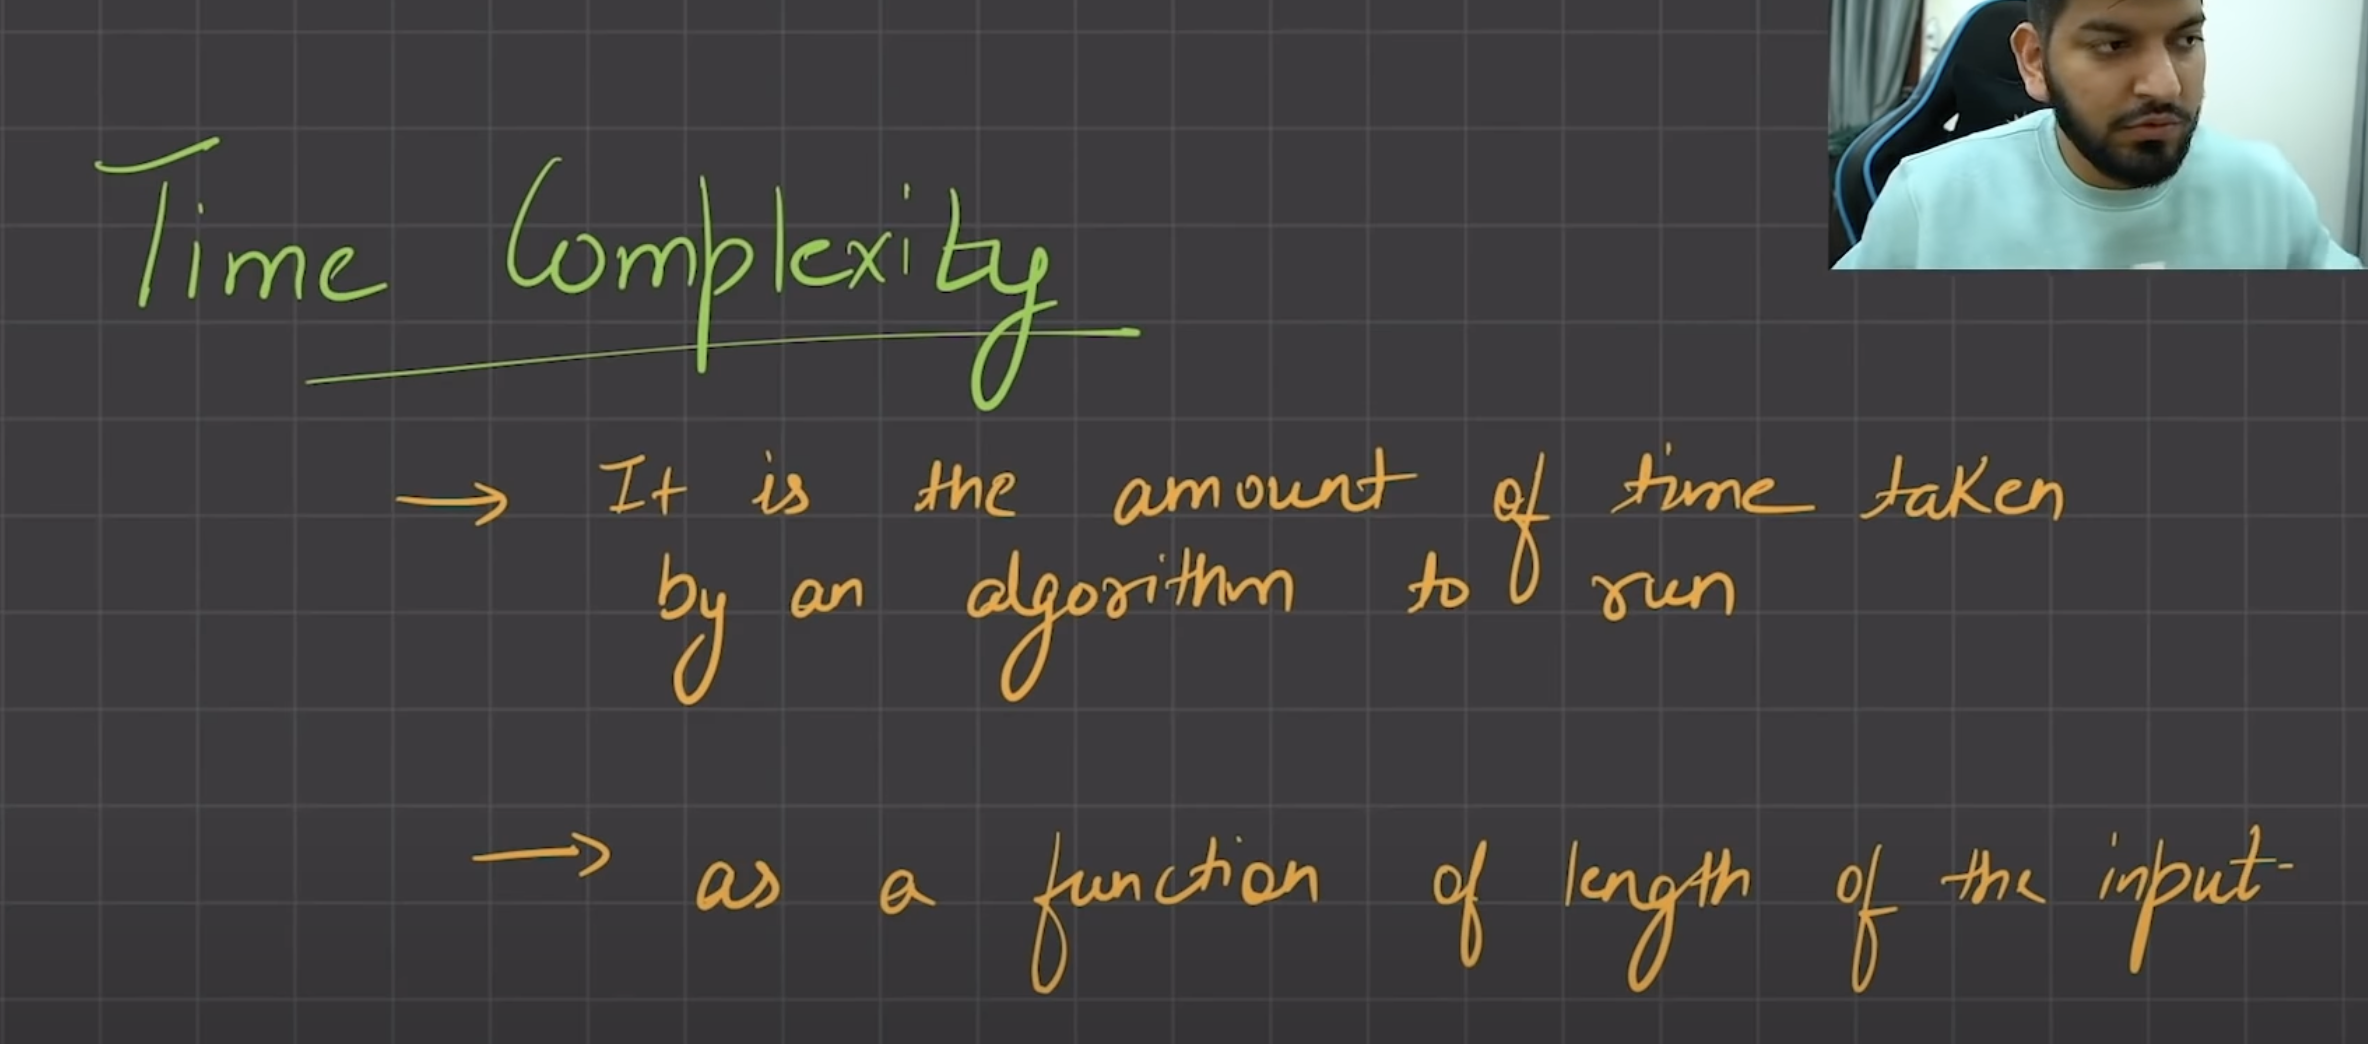 Time Complexity
→ It is the amount of time taken
by an algorithm to run
→ as a function of length of the input-